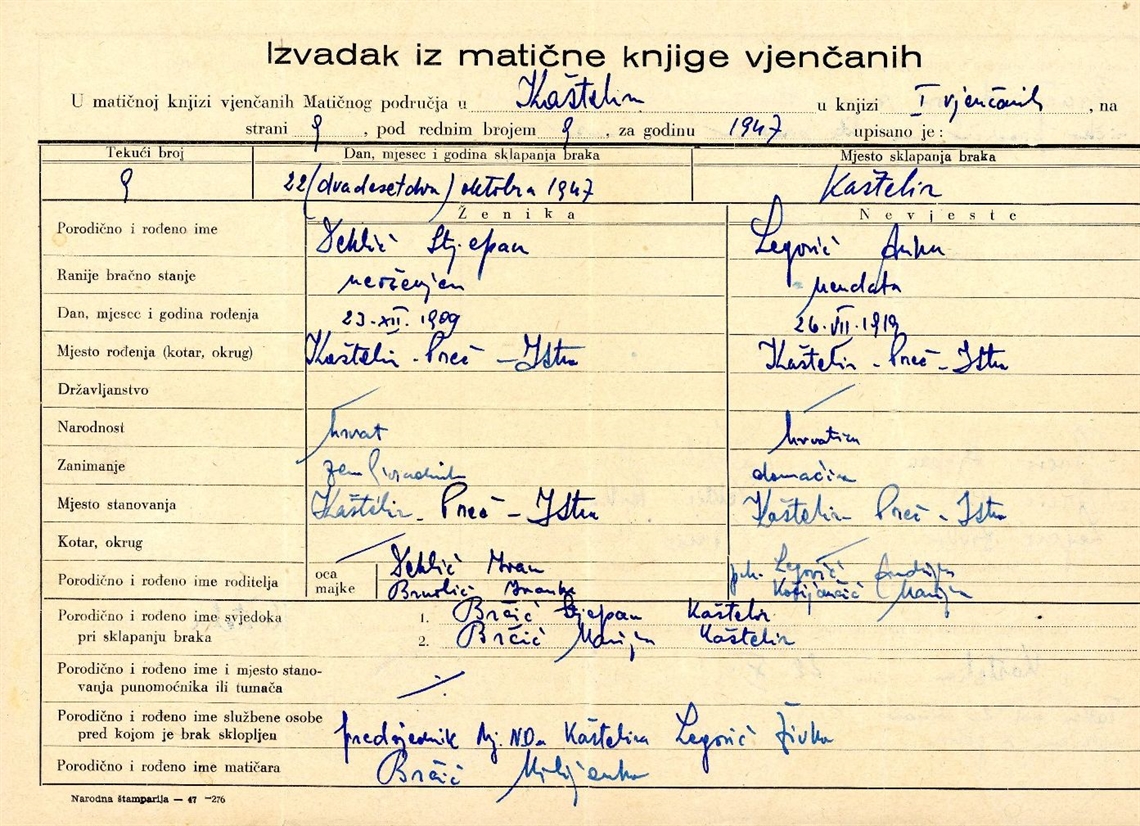 Izvadak iz matične knjige vjenčanih
U matičnoj knjizi vjenčanih Matičnog područja u Kaštelir u knjizi I vjenčanih, na
strani 9, pod rednim brojem 9, za godinu 1947 upisano je:
Tekući broj Dan, mjesec i godina sklapanja braka Mjesto sklapanja braka
9 22 (dvadesetdva) oktobra 1947 Kaštelir
Ženika Nevjeste
Porodično i rođeno ime Stjepan Legović Anka
Ranije bračno stanje neoženjen neudata
Dan, mjesec i godina rođenja 23.XII.1909 26.VII.1919
Mjesto rođenja (kotar, okrug) Kaštelir - Poreč - Istra Kaštelir - Poreč - Istra
Državljanstvo
Narodnost hrvat hrvatica
Zanimanje zemljoradnik domaćica
Mjesto stanovanja Kaštelir - Poreč - Istra Kaštelir Poreč - Istra
Kotar, okrug
Porodično i rođeno ime roditelja oca Ivan Legović Andrija
majke Ivanka Marija
Porodično i rođeno ime svjedoka 1. Brčić Stjepan Kaštelir
pri sklapanju braka 2. Brčić Marija Kaštelir
Porodično i rođeno ime i mjesto stano-
vanja punomoćnika ili tumača
Porodično i rođeno ime službene osobe
pred kojom je brak sklopljen predsjednik Mj. NOa Kaštelira Legović Živko
Porodično i rođeno ime matičara Brčić Milijenko
Narodna štamparija — 47 —276